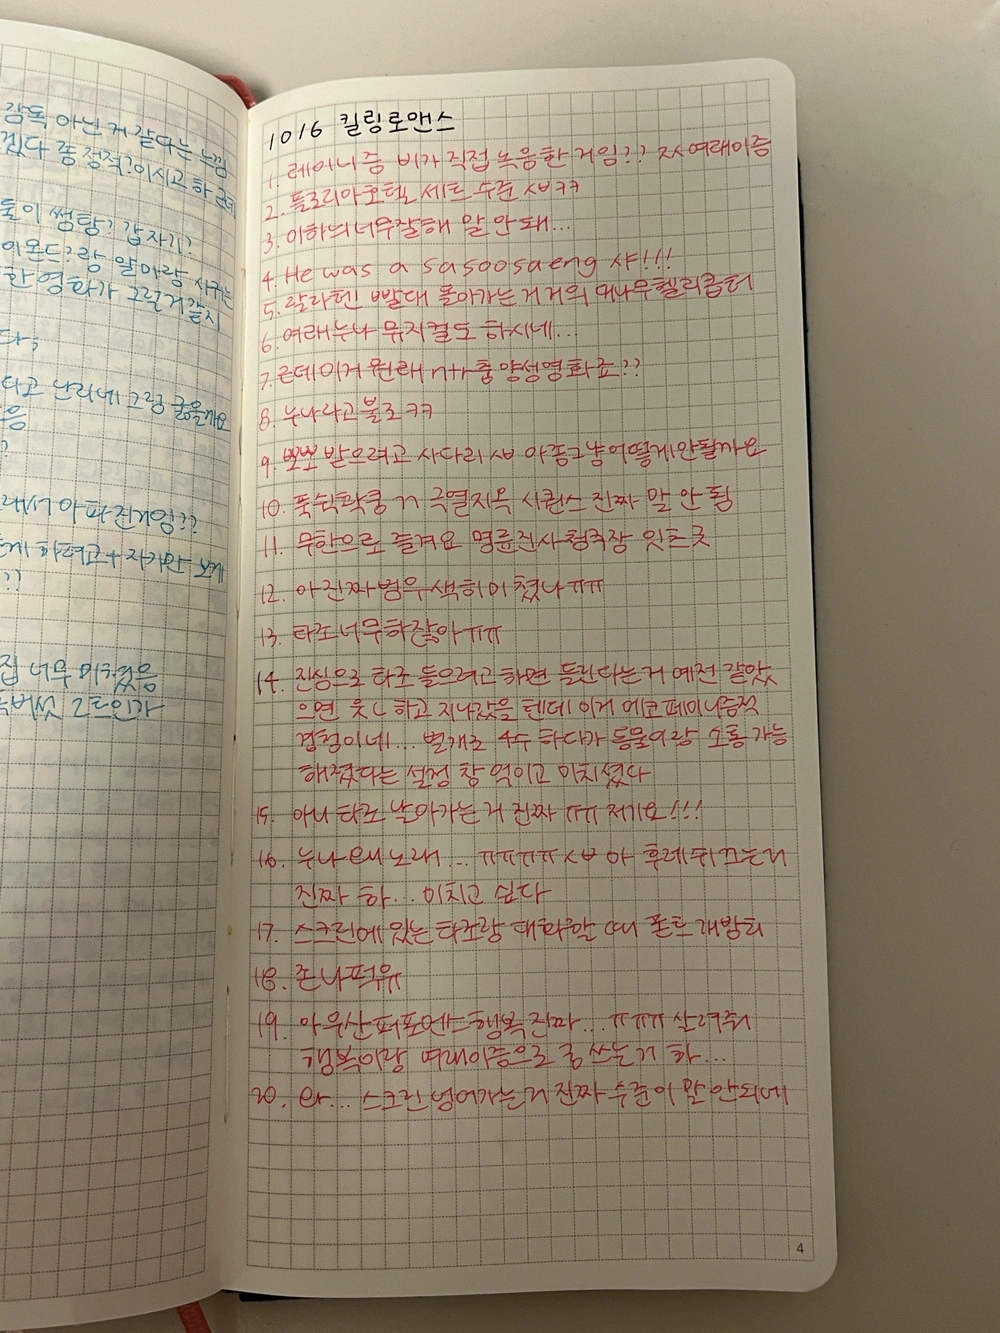 감독 아닌 거 같다는 느낌
겠다 좀 정적?이시고 하 근데
둘이 썽탐? 갑자기?
이몬드?랑 알마랑 사귀는
한 영화가 그런거같지
다;
다고 난리네 그럼 굶을까요
음
?
래서 아파진거임??
게 하려고+자기만 보게
??
집 너무 미쳤음
독버섯 고르인가
1016 킬링로맨스
1. 레이니즘 비가 직접 녹음한 거임?? ㅈㅅ여래이즘
2. 플로리아호텔 세트 수준 ㅅㅂㅋㅋ
3. 이하늬너무잘해 말 안 돼...
4. He was a sasoosaeng 샤!!!
5. 팔대 돌아가는거 거의 대나무헬리콥터
6. 여래누나 뮤지컬도 하시네...
7. 근데이거 원래 n+n충 양성영화죠??
8. 누나라고 불로 ㅋㅋ
9. 뽀뽀 받으려고 사다리 ㅅㅂ 아 좀그냥어떻게안될까요
10. 푹쉭확쿵 ㄱㄱ 극열지옥 시퀀스 진짜 말 안 됨
11. 무한으로 즐겨요 명륜진사청국장 왓츠굿
12. 아진짜범우색히미쳤나ㅠㅠ
13. 타조너무하잖아ㅠㅠ
14. 진심으로 타조 들으려고 하면 들린다는 거 예전 같았
으면 웃ㄴ 하고 지나갔을 텐데 이거 에코페미니즘적
경청이네... 별개로 4수 하다가 동물이랑 소통 가능
해졌다는 설정 창 억이고 미치셨다
15. 아니 타조 날아가는 거 진짜 ㅠㅠ 저기요!!!
16. 누나 왜 노래... ㅠㅠㅠㅠ ㅅㅂ 아 후레쉬 끄는거
진짜 하... 미치고 싶다
17. 스크린에 있는 타조랑 대화할 때 폰트 개빡돼
18. 존나퍽유
19. 아우산퍼포먼스행복 진짜... ㅠㅠㅠ 살려줘
행복이랑 여래이즘으로 롱 쓰는거 하...
20. 와... 스크린 넘어가는거 진짜 수준이 말 안되네
4